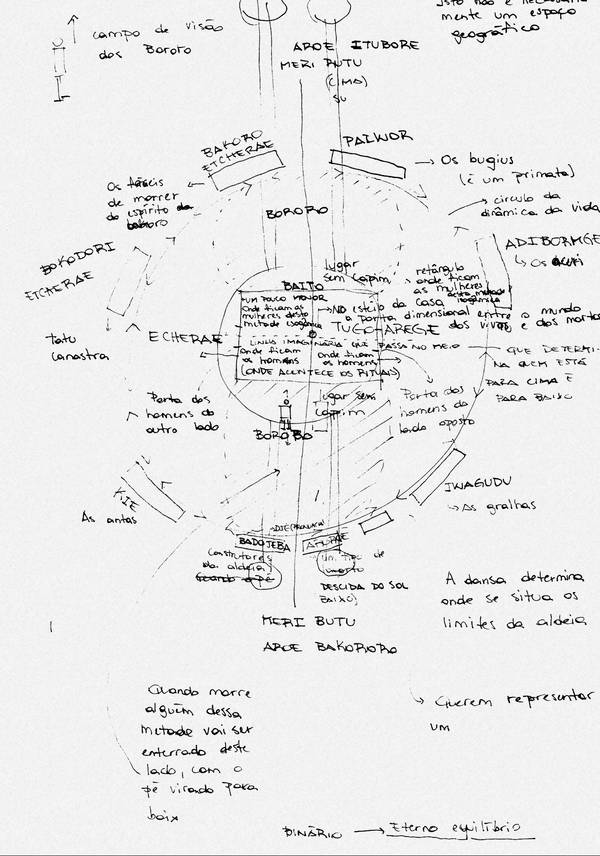 isto não é
mente um espaço
geográfico
campo de visão
dos Bororo
AROE ITUBORE
MERI RUTU
(CIMA)
SU
BAKORO
ETCHERAE
PAIWOR
→ Os bugius
(é um primata)
circulo da
dinâmica da vida
Os
de morrer
do espirito da
BORORO
BOKODORI
ETCHERAE
ADIBORMGE
↳ Os
lugar
sem capim
BAITO
retângulo
onde ficam
as mulheres
desta metade
UM POUCO MENOR
Onde ficam as
mulheres desta
metade exogâmica
→ NO esteio da casa
a porta dimensional entre o mundo
TUGO-AREGE dos vivos e dos mortos
ECHERAE
LINHA IMAGINÁRIA QUE PASSA NO MEIO
QUE DETERMI-
NA QUEM ESTÁ
PARA CIMA E
PARA BAIXO
onde ficam
os homens
onde ficam
os homens
(ONDE ACONTECE OS RITUAIS)
Tatu
canastra
Porta dos
homens do
outro lado
lugar sem
capim
Porta dos
homens do
lado oposto
BORO BO
KIE
As antas
IWAGUDU
↳ As gralhas
BADOJEBA
Construtores
da aldeia
Um tipo de
DESCIDA DO SOL
BAIXO)
MERI BUTU
AROE BAKORORO
A dansa determina
onde se situa os
limites da aldeia
Quando morre
alguém dessa
metade vai ser
enterrado deste
lado, com o
pé virado para
baix
Querem representar
um
BINÁRIO → Eterno equilíbrio